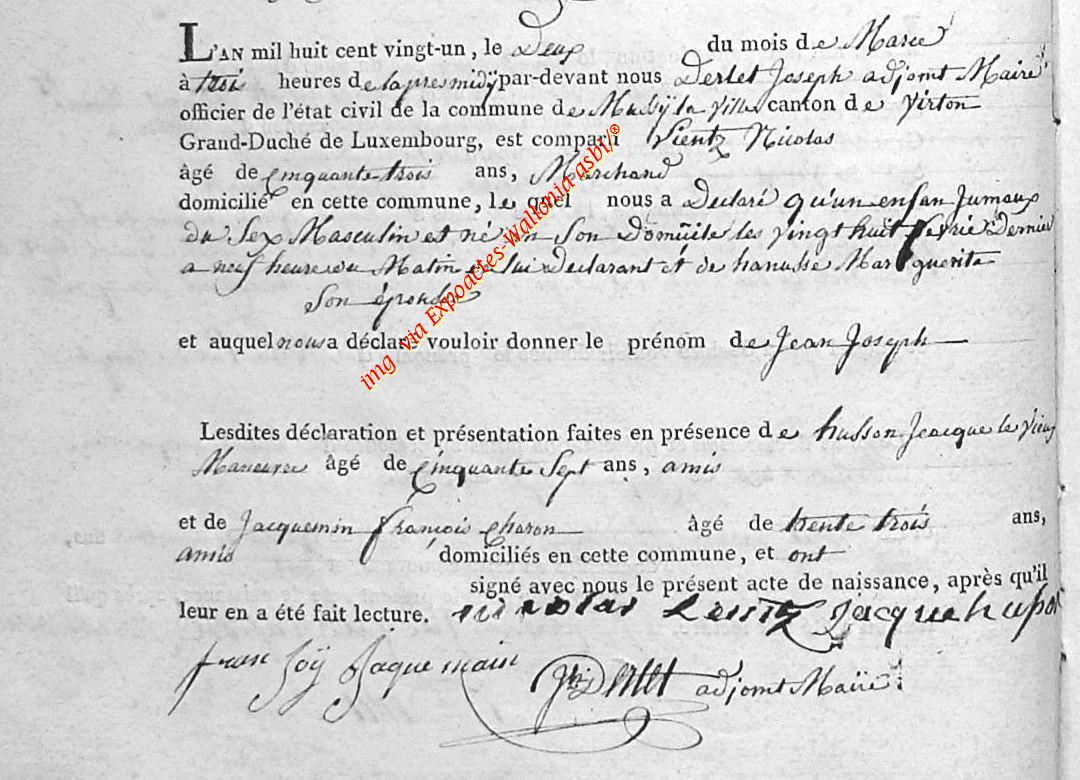 L'AN mil huit cent vingt-un, le Deux du mois de Marce
à trois heures de lapresmidÿ par-devant nous Derlet Joseph adjomt Maire
officier de l'état civil de la commune de Mußÿ la ville canton de Virton
Grand-Duché de Luxembourg, est comparu Lientz Nicolas
âgé de Cinquante-trois ans, Marchand
domicilié en cette commune, le quel nous a Declaré qu'un enfan Jumaux
du Sex Masculin et né en Son Domicile les vingt huit fevrie Dernier
a neuf heure du Matin de lui Declarant et de hanusse Marguerite
Son épouse
et auquel nous a déclaré vouloir donner le prénom de Jean Joseph
Lesdites déclaration et présentation faites en présence de husson Jeacque le vieux
Maneuvre âgé de Cinquante Sept ans, amis
et de Jacquemin françois Charon âgé de trente trois ans,
amis domiciliés en cette commune, et ont
signé avec nous le présent acte de naissance, après qu'il
leur en a été fait lecture. nicolas Leintz Jacque hußon
fran soÿ Jaque main Jh Derlet adjomt Maïre
img via Expoactes-Wallonia asbl/®